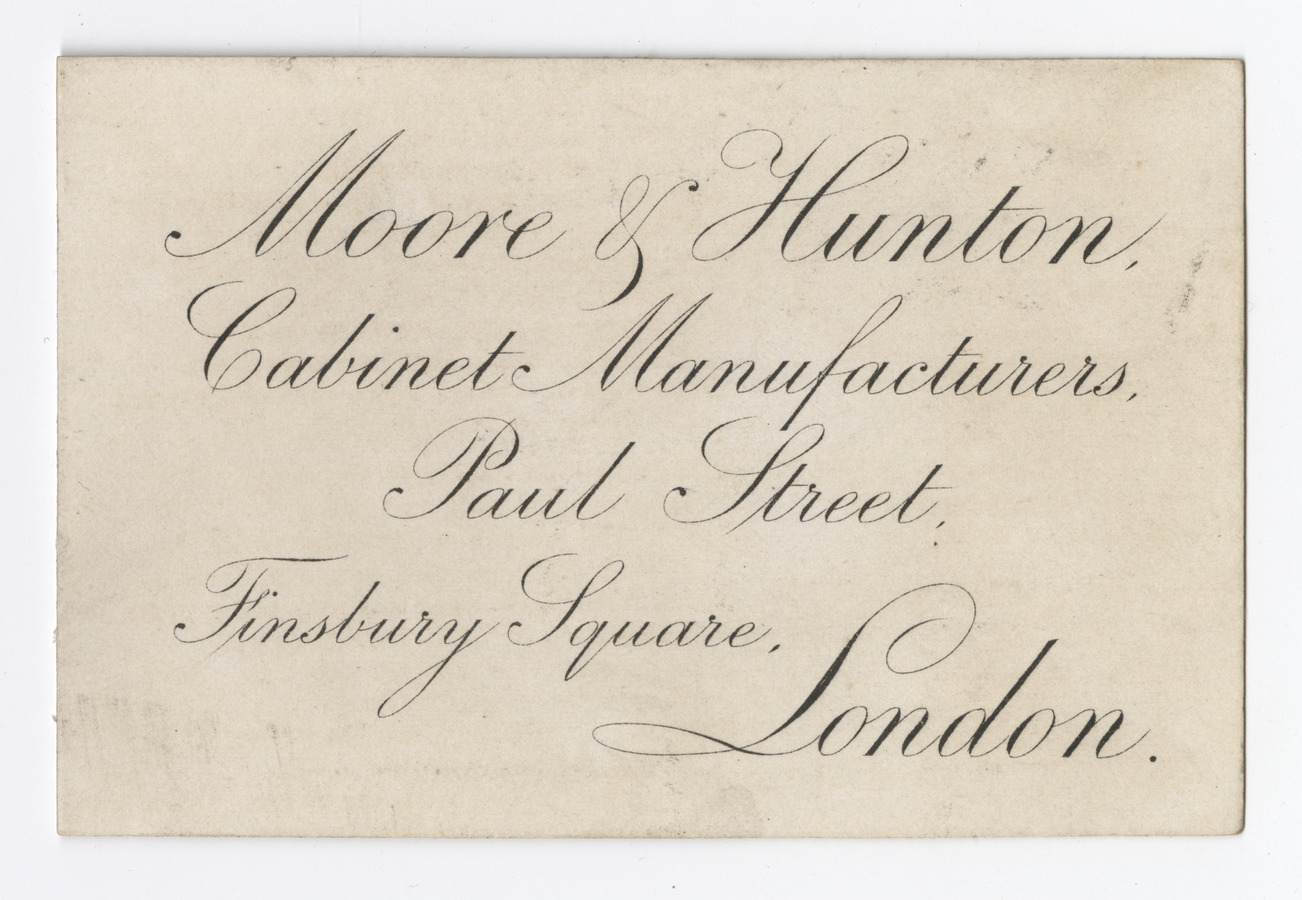 Moore & Hunton,
Cabinet Manufacturers,
Paul Street,
Finsbury Square,
London.